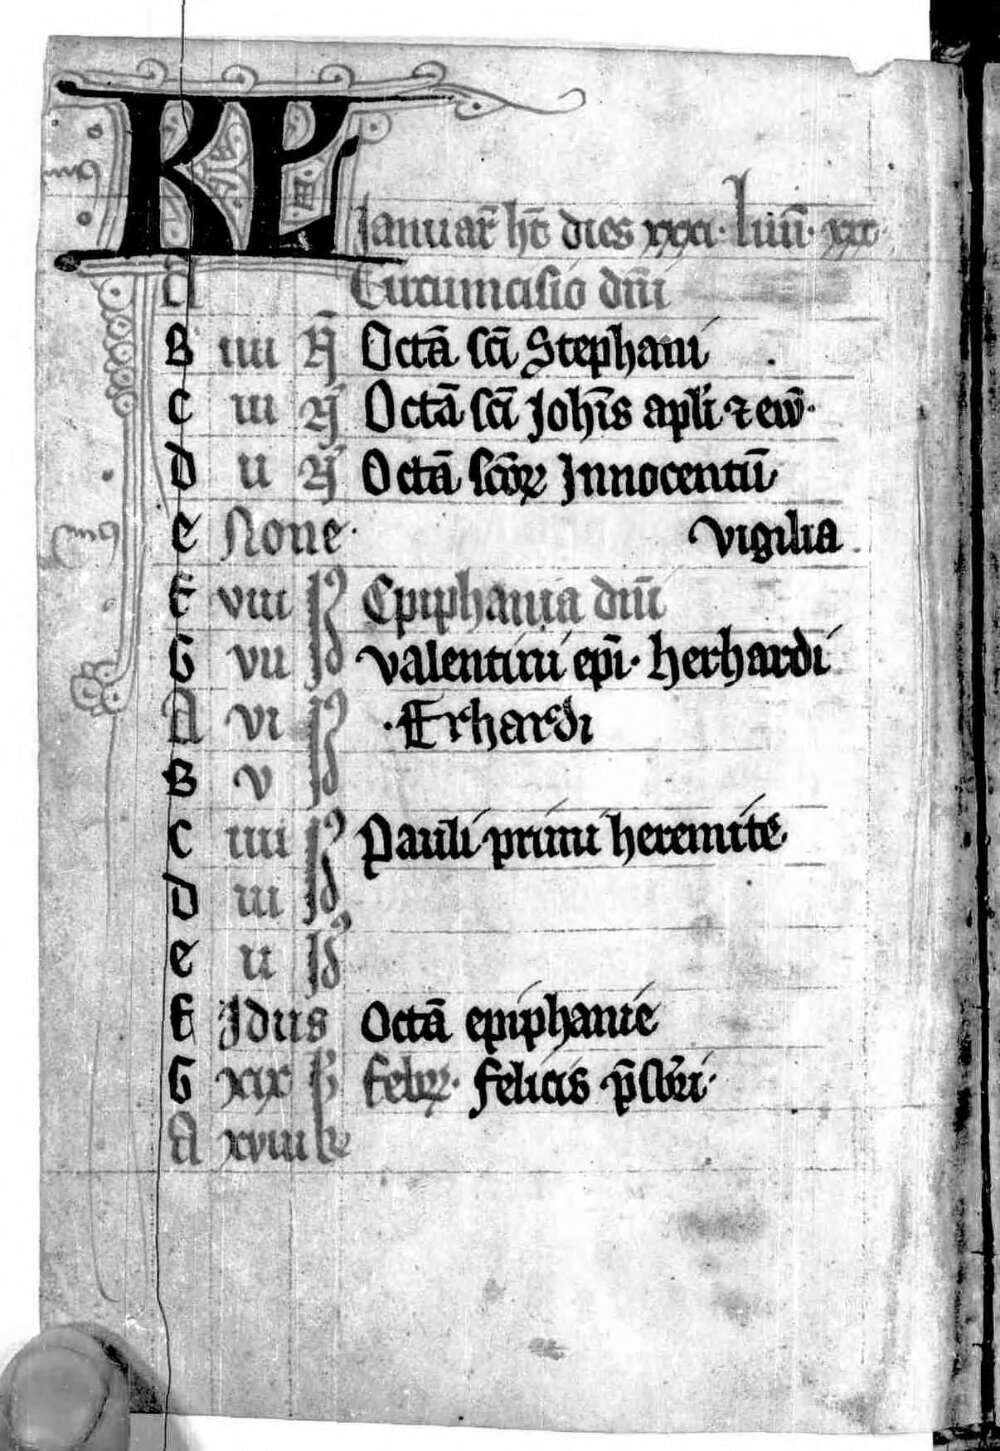 KL Januar̄ ht̄ dies xxxi· lun̄· xxx·
A Circumcisio dn̄i
B iiii N̄ Octā sc̄i Stephani
C iii N̄ Octā sc̄i Joh̄is apl̄i ⁊ ew̄·
D ii N̄ Octā sc̄oꝝ Innocentū
E None· vigilia
F viii Id᷒ Epiphania dn̄i
G vii Id᷒ valentini ep̄i· herhardi
A vi Id᷒ ·Erhardi
B v Id᷒
C iiii Id᷒ Pauli primi heremite
D iii Id᷒
e ii Id᷒
F Idus Octā epiphanie
G xix kl̄ febrꝝ· felicis p̄sbri·
A xviii kl̄